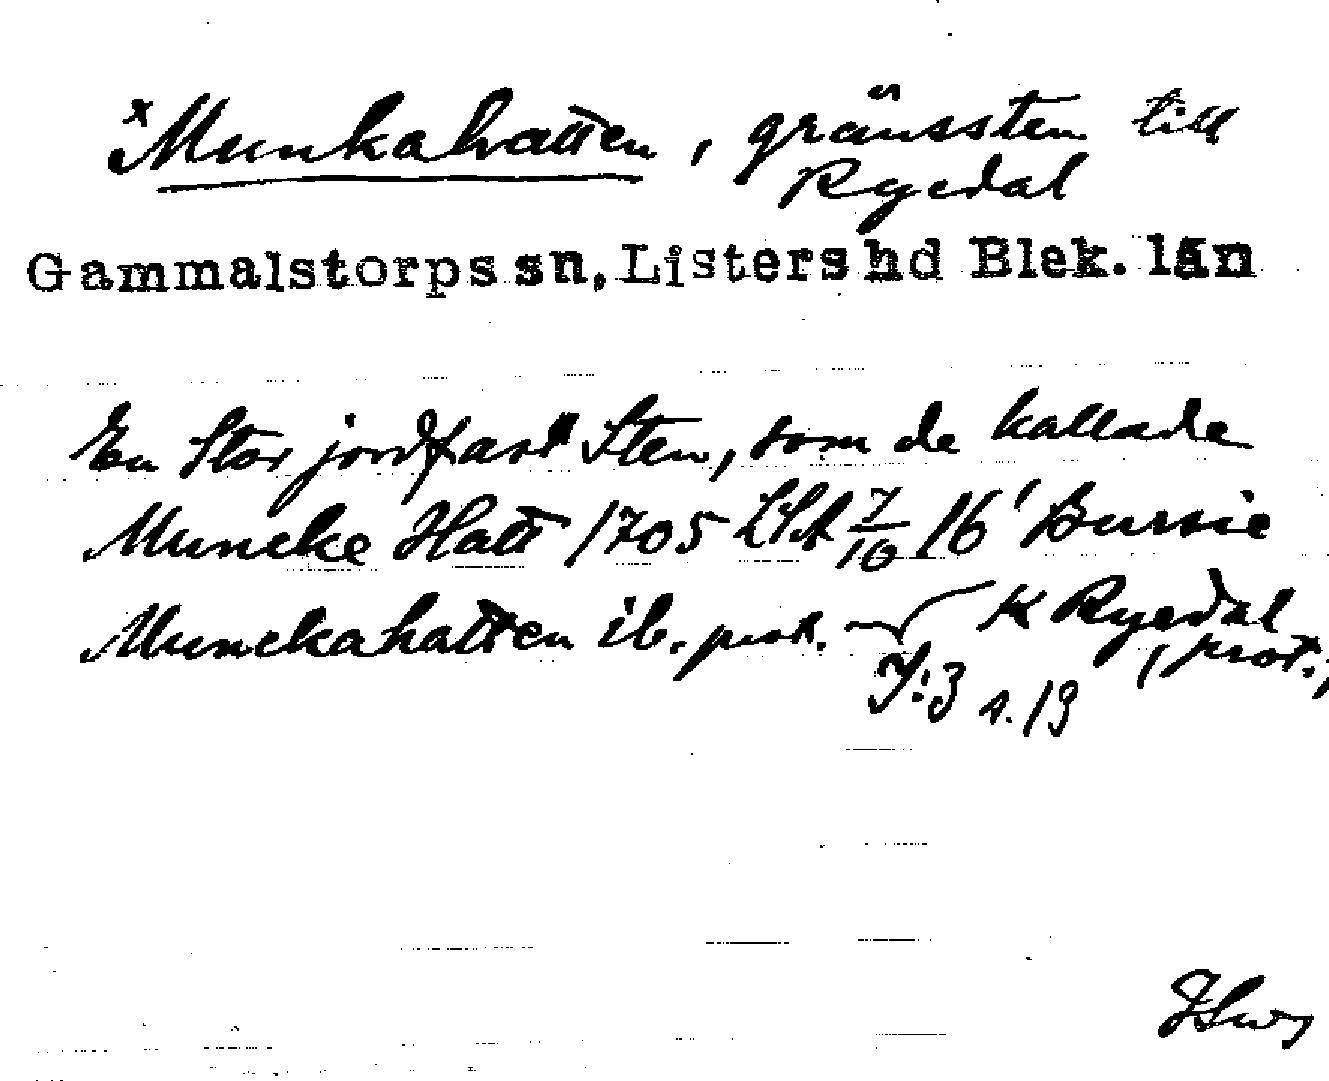 x Munkahatten, gränssten till
Ryedal
Gammalstorps sn, Listers hd Blek. län
En Stor jordfast Sten, som de kallade
Muncke Hatt 1705 7/10 16'
Munckahatten ib. prot. K Ryedal
(prot.)
J:3 s. 13